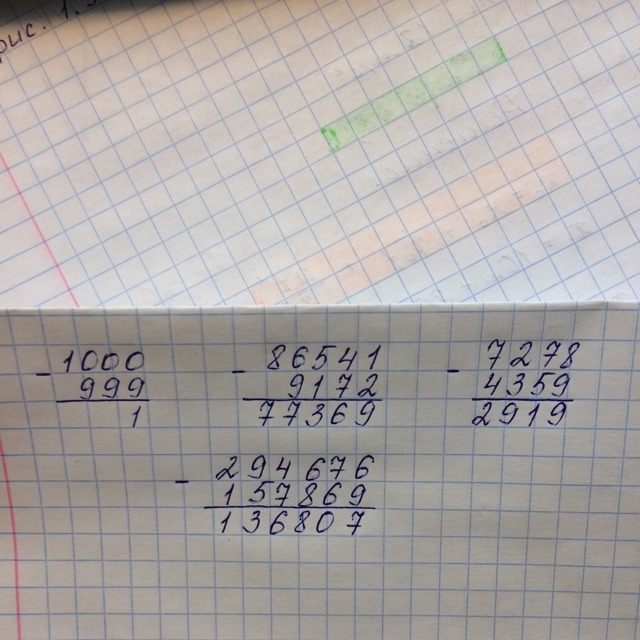 рис. 1.
- 1000
999
1
- 86541
9172
77369
- 7278
4359
2919
- 294676
157869
136807